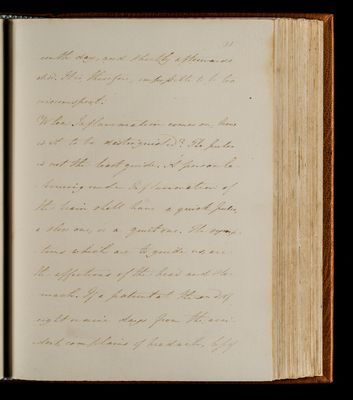 31
ninth day, and shortly afterwards
died. It is, therefore, impossible to be too
circumspect.
When Inflammation comes on, how
is it to be distinguished? The pulse
is not the best guide. A person la-
bouring under Inflammation of
the brain shall have a quick pulse,
a slow one, or a quiet one. The symp-
toms which are to guide us, are
the affections of the head and sto-
mach. If a patient at the end of
eight or nine days from the acci-
dent, complains of headache,